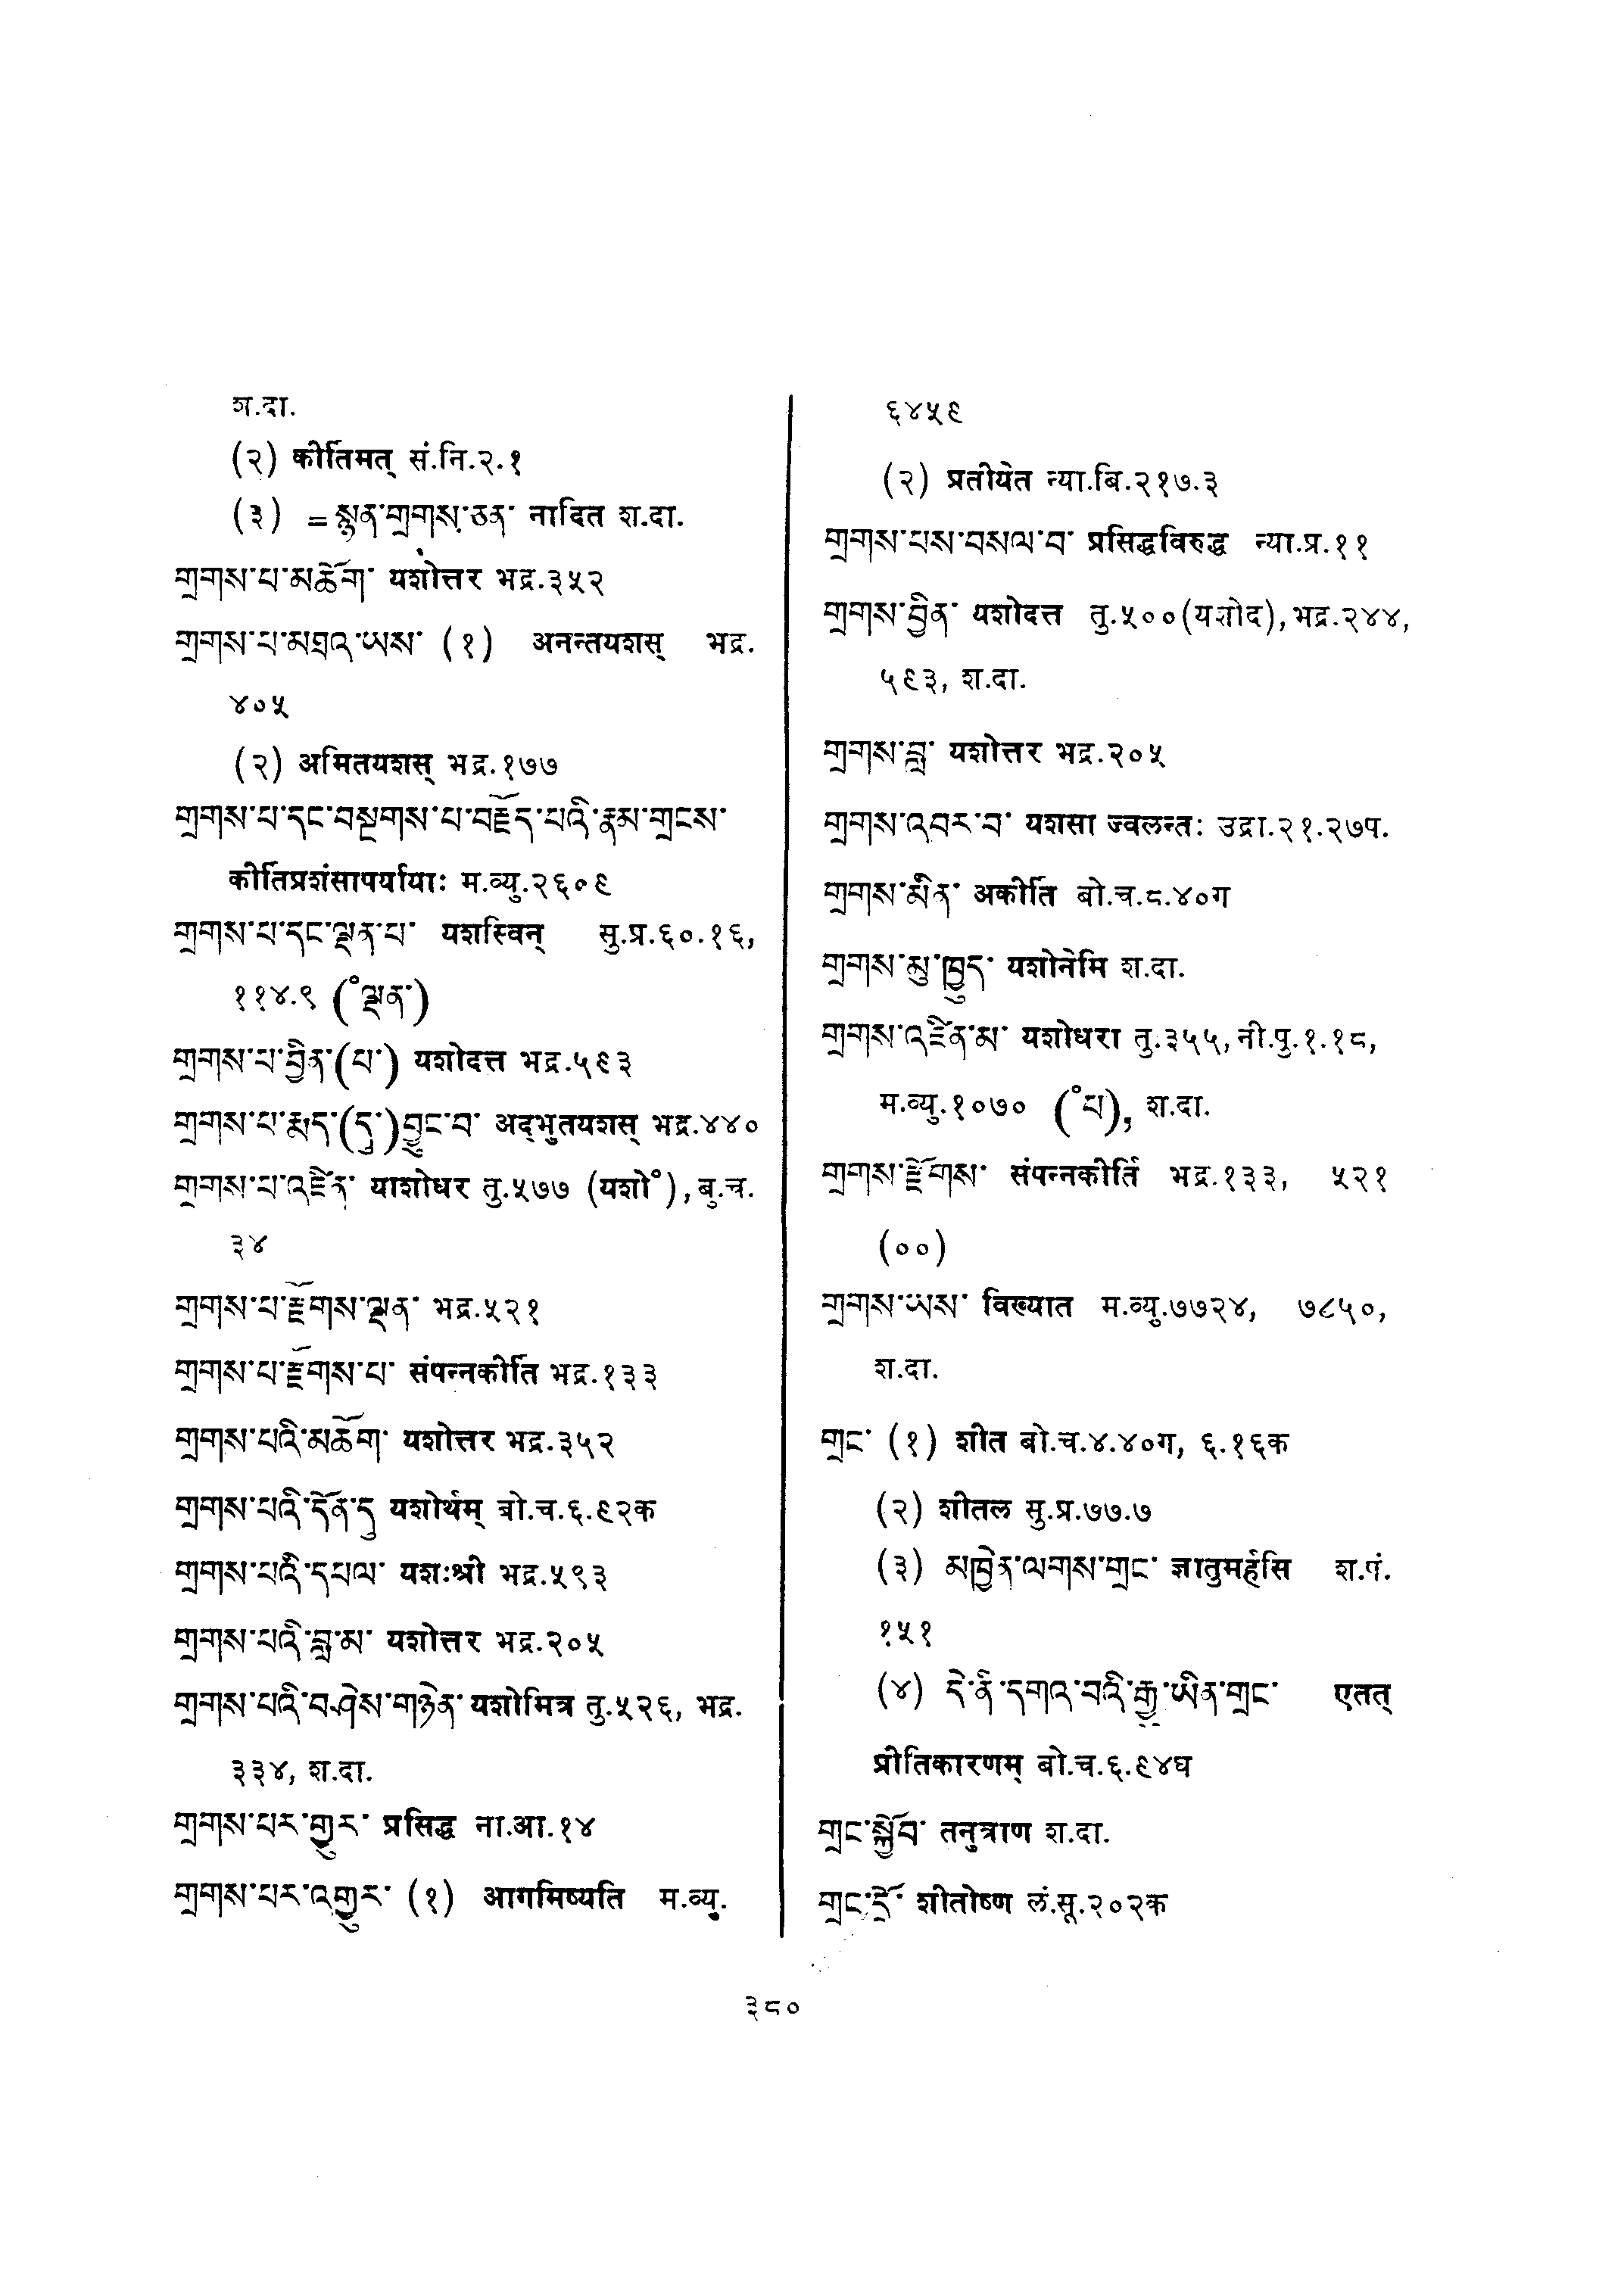 श.दा.
(२) कीर्तिमत् सं.नि.२.१
(३) =སྙན་གྲགས་ཅན་ नादित श.दा.
གྲགས་པ་མཆོག་ यशोत्तर भद्र.३५२
གྲགས་པ་མཐའ་ཡས་ (१) अनन्तयशस् भद्र.
४०५
(२) अमितयशस् भद्र.१७७
གྲགས་པ་དང་བསྔགས་པ་བརྗོད་པའི་རྣམ་གྲངས་
कीर्तिप्रशंसापर्यायाः म.व्यु.२६०९
གྲགས་པ་དང་ལྡན་པ་ यशस्विन् सु.प्र.६०.१६,
११४.९ (°ལྡན་)
གྲགས་པ་བྱིན་(པ་) यशोदत्त भद्र.५९३
གྲགས་པ་རྨད་(དུ་)བྱུང་བ་ अद्भुतयशस् भद्र.४४०
གྲགས་པ་འཛིན་ याशोधर तु.५७७ (यशो°), बु.च.
३४
གྲགས་པ་རྫོགས་ལྡན་ भद्र.५२१
གྲགས་པ་རྫོགས་པ་ संपन्नकीर्ति भद्र.१३३
གྲགས་པའི་མཆོག་ यशोत्तर भद्र.३५२
གྲགས་པའི་དོན་དུ यशोर्थम् बो.च.६.९२क
གྲགས་པའི་དཔལ་ यशःश्री भद्र.५९३
གྲགས་པའི་བླ་མ་ यशोत्तर भद्र.२०५
གྲགས་པའི་བཤེས་གཉེན་ यशोमित्र तु.५२६, भद्र.
३३४, श.दा.
གྲགས་པར་གྱུར་ प्रसिद्ध ना.आ.१४
གྲགས་པར་འགྱུར་ (१) आगमिष्यति म.व्यु.
६४५९
(२) प्रतीयेत न्या.बि.२१७.३
གྲགས་པས་བསལ་བ་ प्रसिद्धविरुद्ध न्या.प्र.११
གྲགས་བྱིན་ यशोदत्त तु.५००(यशोद), भद्र.२४४,
५९३, श.दा.
གྲགས་བླ་ यशोत्तर भद्र.२०५
གྲགས་འབར་བ་ यशसा ज्वलन्तः उद्रा.२१.२७प.
གྲགས་མིན་ अकीर्ति बो.च.८.४०ग
གྲགས་མུ་ཁྱུད་ यशोनेमि श.दा.
གྲགས་འཛིན་མ་ यशोधरा तु.३५५, नी.पु.१.१८,
म.व्यु.१०७० (°པ), श.दा.
གྲགས་རྫོགས་ संपन्नकीर्ति भद्र.१३३, ५२१
(००)
གྲགས་ཡས་ विख्यात म.व्यु.७७२४, ७८५०,
श.दा.
གྲང་ (१) शीत बो.च.४.४०ग, ६.१६क
(२) शीतल सु.प्र.७७.७
(३) མཁྱེན་ལགས་གྲང་ ज्ञातुमर्हसि श.पं.
१५१
(४) དེ་ནི་དགའ་བའི་རྒྱུ་ཡིན་གྲང་ एतत्
प्रीतिकारणम् बो.च.६.९४घ
གྲང་སྐྱོབ་ तनुत्राण श.दा.
གྲང་དྲོ་ शीतोष्ण लं.सू.२०२क
३८०